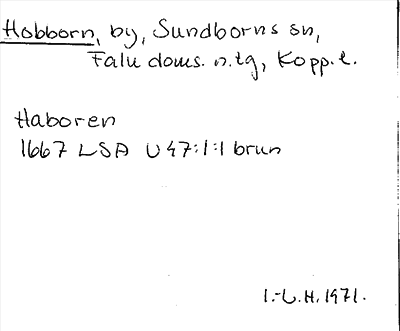 Hobborn, by, Sundborns sn,
Falu doms. n.tg, Kopp.l.
Haboren
1667 LSA U47:1:1 brun
I.-L.H. 1971.